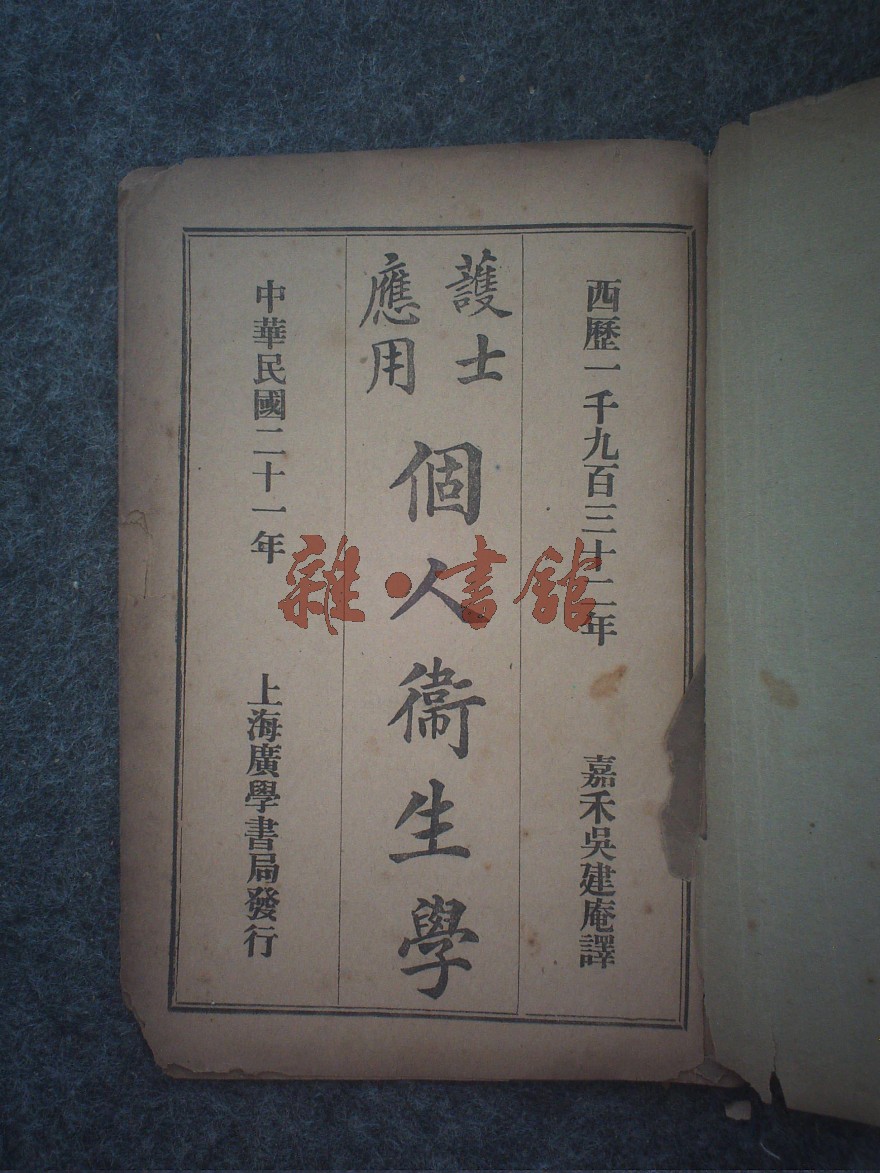 西歷一千九百三十二年
嘉禾吳建庵譯
護士
應用
個人衞生學
中華民國二十一年
上海廣學書局發行
雜·書館